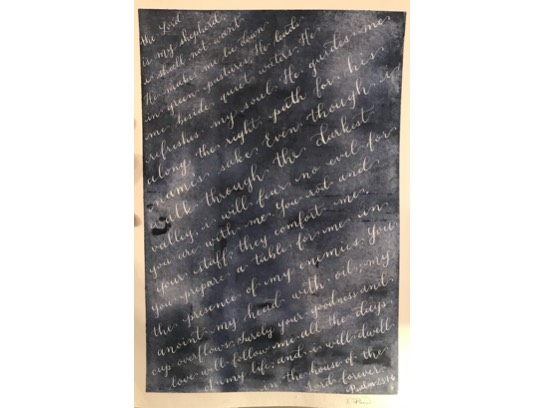 the Lord
is my shepherd,
i shall not want.
He makes me lie down
in green pastures, He leads
me beside quiet waters, He
refreshes my soul. He guides me
along the right path for his
names sake. Even though i
walk through the darkest
valley, i will fear no evil for
you are with me. You rod and
your staff, they comfort me.
You prepare a table for me in
the presence of my enemies. You
anoint my head with oil; my
cup overflows. Surely your goodness and
love will follow me all the days
of my life, and i will dwell
in the house of the
Lord forever.
Psalm 23